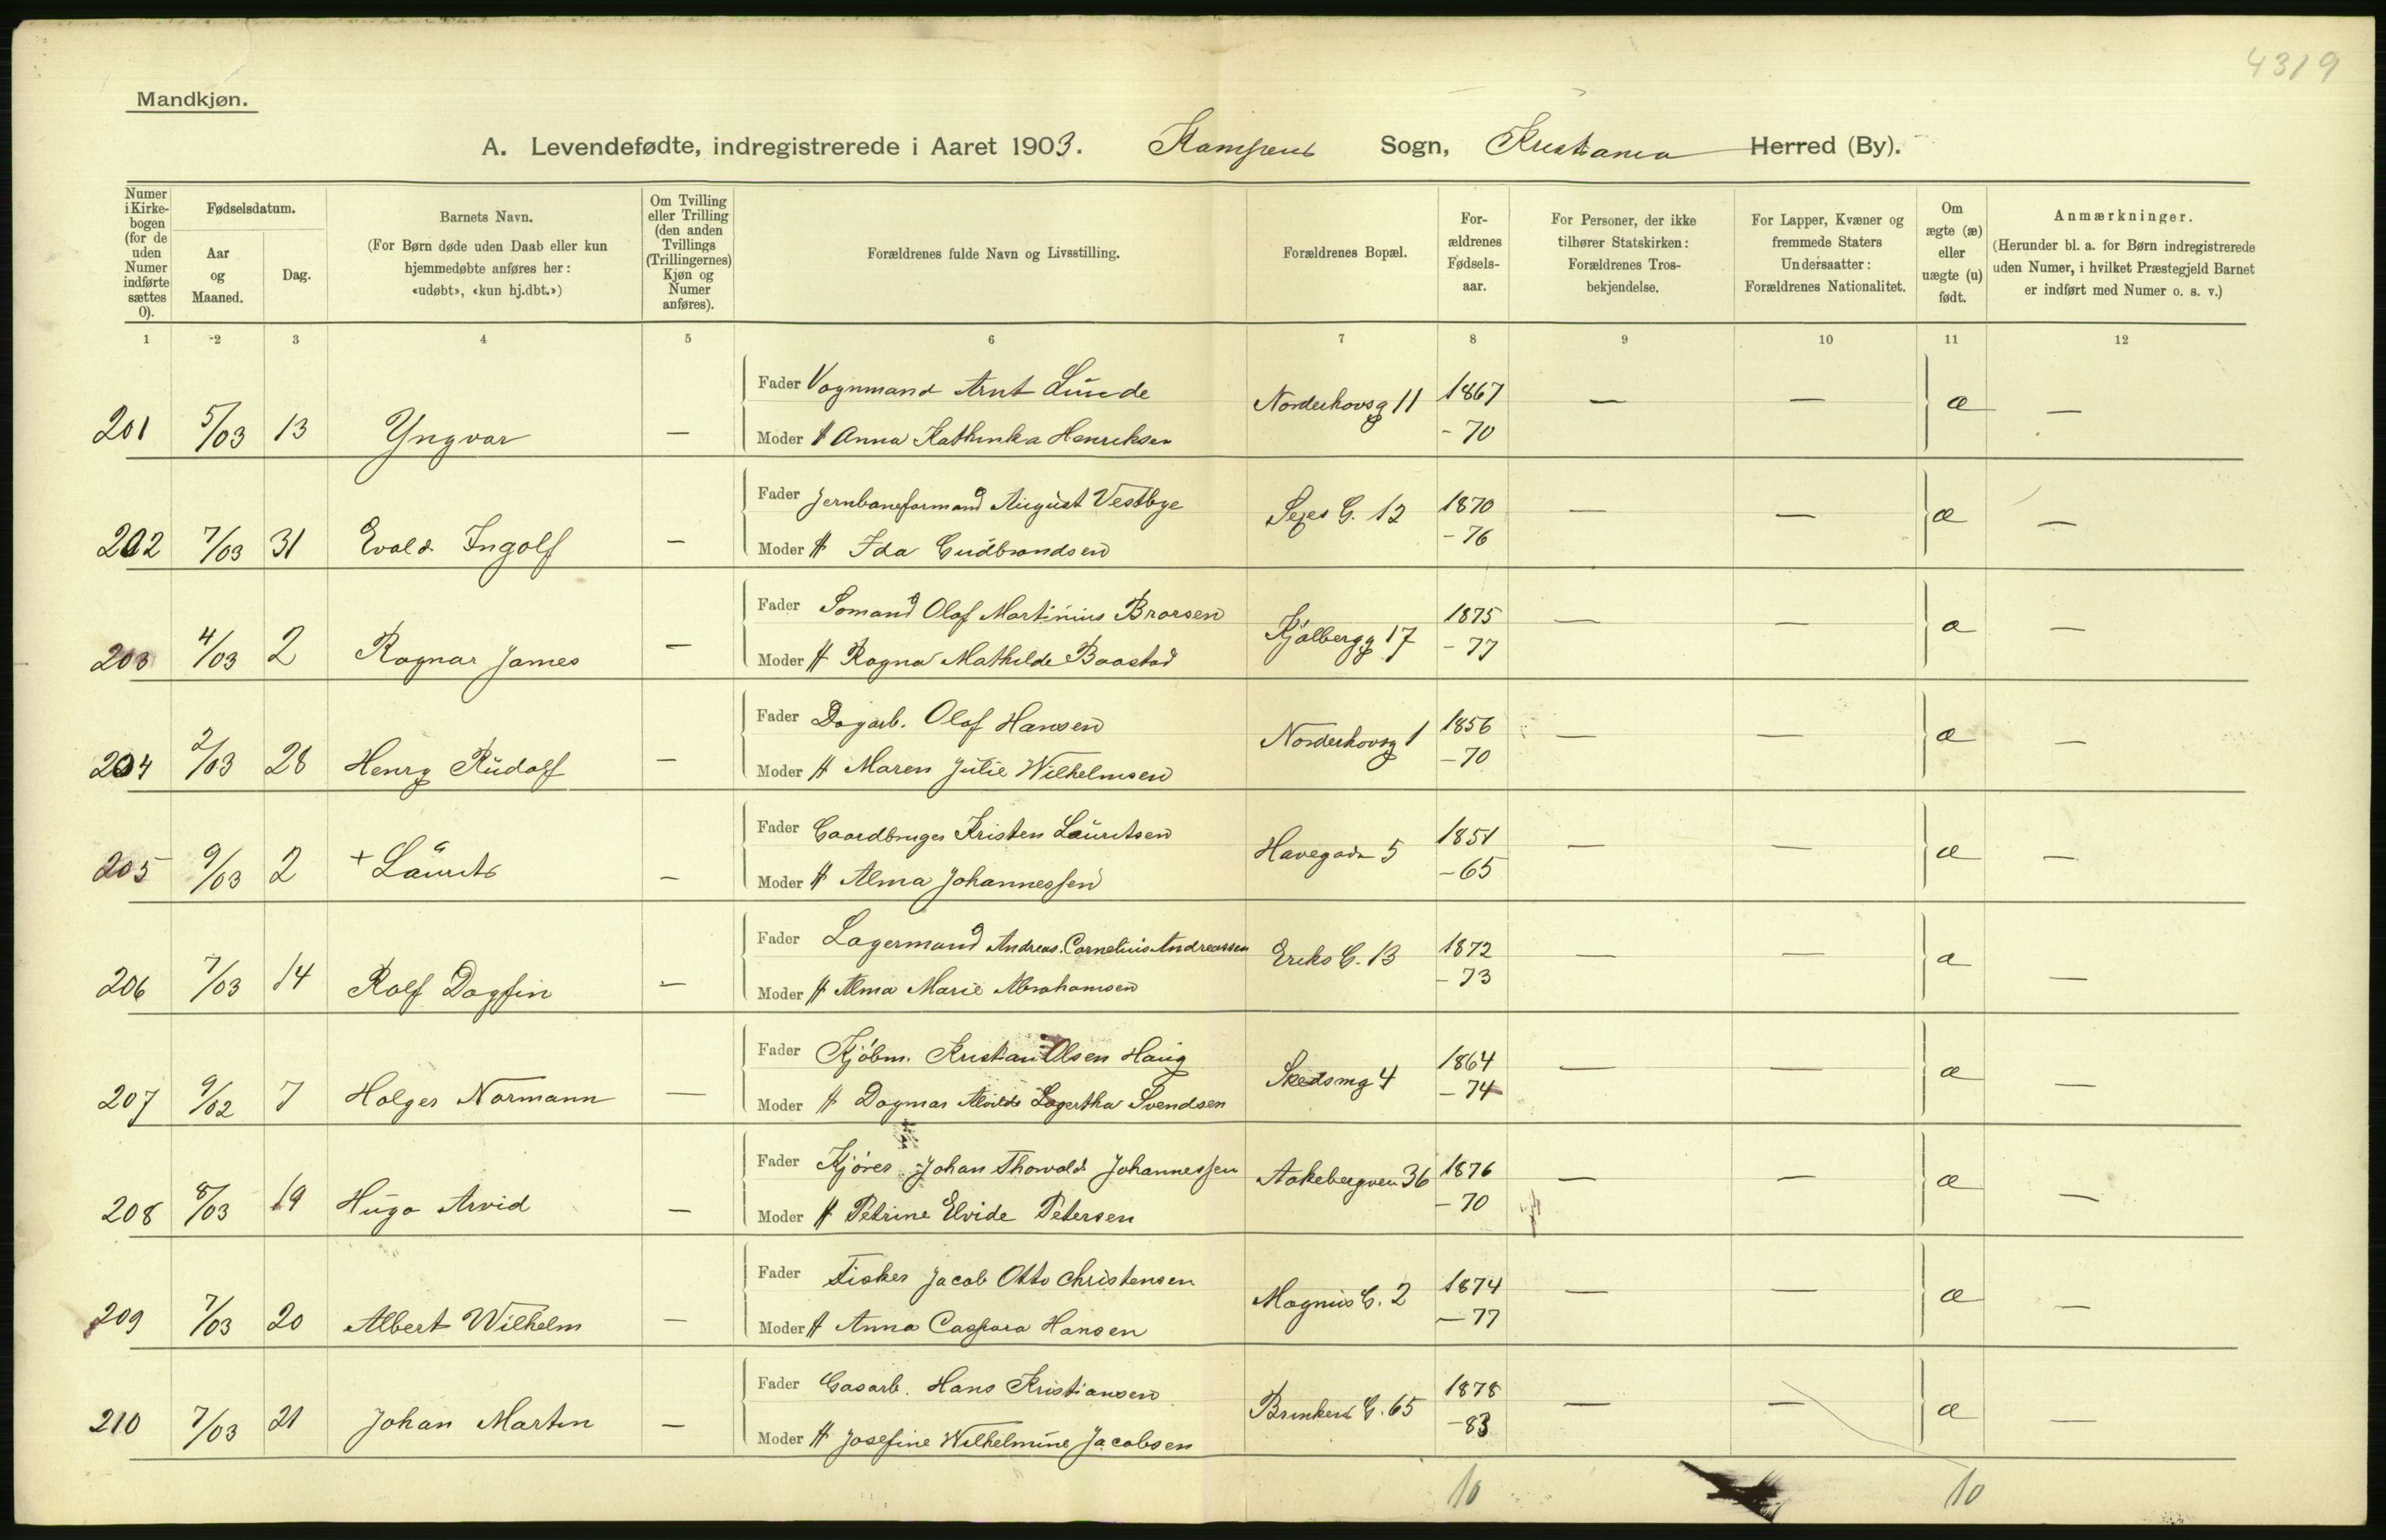 4319
Mandkjøn.
A. Levendefødte, indregistrerede i Aaret 1903. Kampens Sogn, Kristiania Herred (By).
Numer i Kirkebogen (for de uden Numer indførte sættes 0).
Fødselsdatum.
Aar og Maaned.
Dag.
Barnets Navn.
(For Børn døde uden Daab eller kun hjemmedøbte anføres her: «udøbt», «kun hj.dbt.»)
Om Tvilling eller Trilling (den anden Tvillings (Trillingernes) Kjøn og Numer anføres).
Forældrenes fulde Navn og Livsstilling.
Forældrenes Bopæl.
Forældrenes Fødselsaar.
For Personer, der ikke tilhører Statskirken: Forældrenes Trosbekjendelse.
For Lapper, Kvæner og fremmede Staters Undersaatter: Forældrenes Nationalitet.
Om ægte (æ) eller uægte (u) født.
Anmærkninger.
(Herunder bl. a. for Børn indregistrerede uden Numer, i hvilket Præstegjeld Barnet er indført med Numer o. s. v.)
1 2 3 4 5 6 7 8 9 10 11 12
Fader Vognmand Arnt Lunde Norderhovsg 11 1867 — — æ —
201 5/03 13 Yngvar — Moder H Anna Kathinka Henriksen - 70
Fader Jernbaneformand August Vestbye Sejes G. 12 1870 — — æ —
202 7/03 31 Evald Ingolf — Moder H Ida Gudbrandsen - 76
Fader Sømand Olaf Martinius Brorsen Kjølbergg 17 1875 — — æ —
203 4/03 2 Ragnar James — Moder H Ragna Mathilde Baastad - 77
Fader Dagarb. Olaf Hansen Norderhovsg 1 1856 — — æ —
204 2/03 28 Henry Rudolf — Moder H Maren Julie Wilhelmsen - 70
Fader Gaardbruger Kristen Lauritsen Havegaden 5 1851 — — æ —
205 9/03 2 + Laurits — Moder H Alma Johannessen - 65
Fader Lagermand Andreas Cornelius Andreassen Eriks G. 13 1872 — — æ —
206 7/03 14 Rolf Dagfin — Moder H Alma Marie Abrahamsen - 73
Fader Kjøbm. Kristian Olsen Haug Skedsmg 4 1864 — — æ —
207 9/02 7 Holger Normann — Moder H Dagmar Alvilde Lagertha Svendsen - 74
Fader Kjører Johan Thorvald Johannessen Aakebergvein 36 1876 — — æ —
208 8/03 19 Hugo Arvid — Moder H Petrine Elvide Petersen - 70
Fader Fisker Jacob Otto Christensen Magnus G. 2 1874 — — æ —
209 7/03 20 Albert Wilhelm — Moder H Anna Caspara Hansen - 77
Fader Gasarb. Hans Kristiansen Brinken G. 65 1878 — — æ —
210 7/03 21 Johan Martin — Moder H Josefine Wilhelmine Jacobsen - 83
10 10